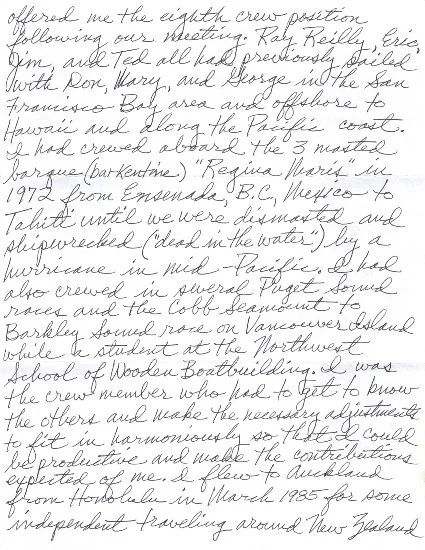 offered me the eighth crew position
following our meeting. Ray, Reilly, Eric,
Jim, and Ted all had previously sailed
with Don, Mary, and George in the San
Francisco Bay area and offshore to
Hawaii and along the Pacific coast.
I had crewed aboard the 3 masted
barque (barkentine) "Regina Maris" in
1972 from Ensenada, B.C., Mexico to
Tahiti until we were dismasted and
shipwrecked ("dead in the water") by a
hurricane in mid-Pacific. I had
also crewed in several Puget Sound
races and the Cobb Seamount to
Barkley Sound race on Vancouver Island
while a student at the Northwest
School of Wooden Boatbuilding. I was
the crew member who had to get to know
the others and make the necessary adjustments
to fit in harmoniously so that I could
be productive and make the contributions
expected of me. I flew to Auckland
from Honolulu in March 1985 for some
independent traveling around New Zealand